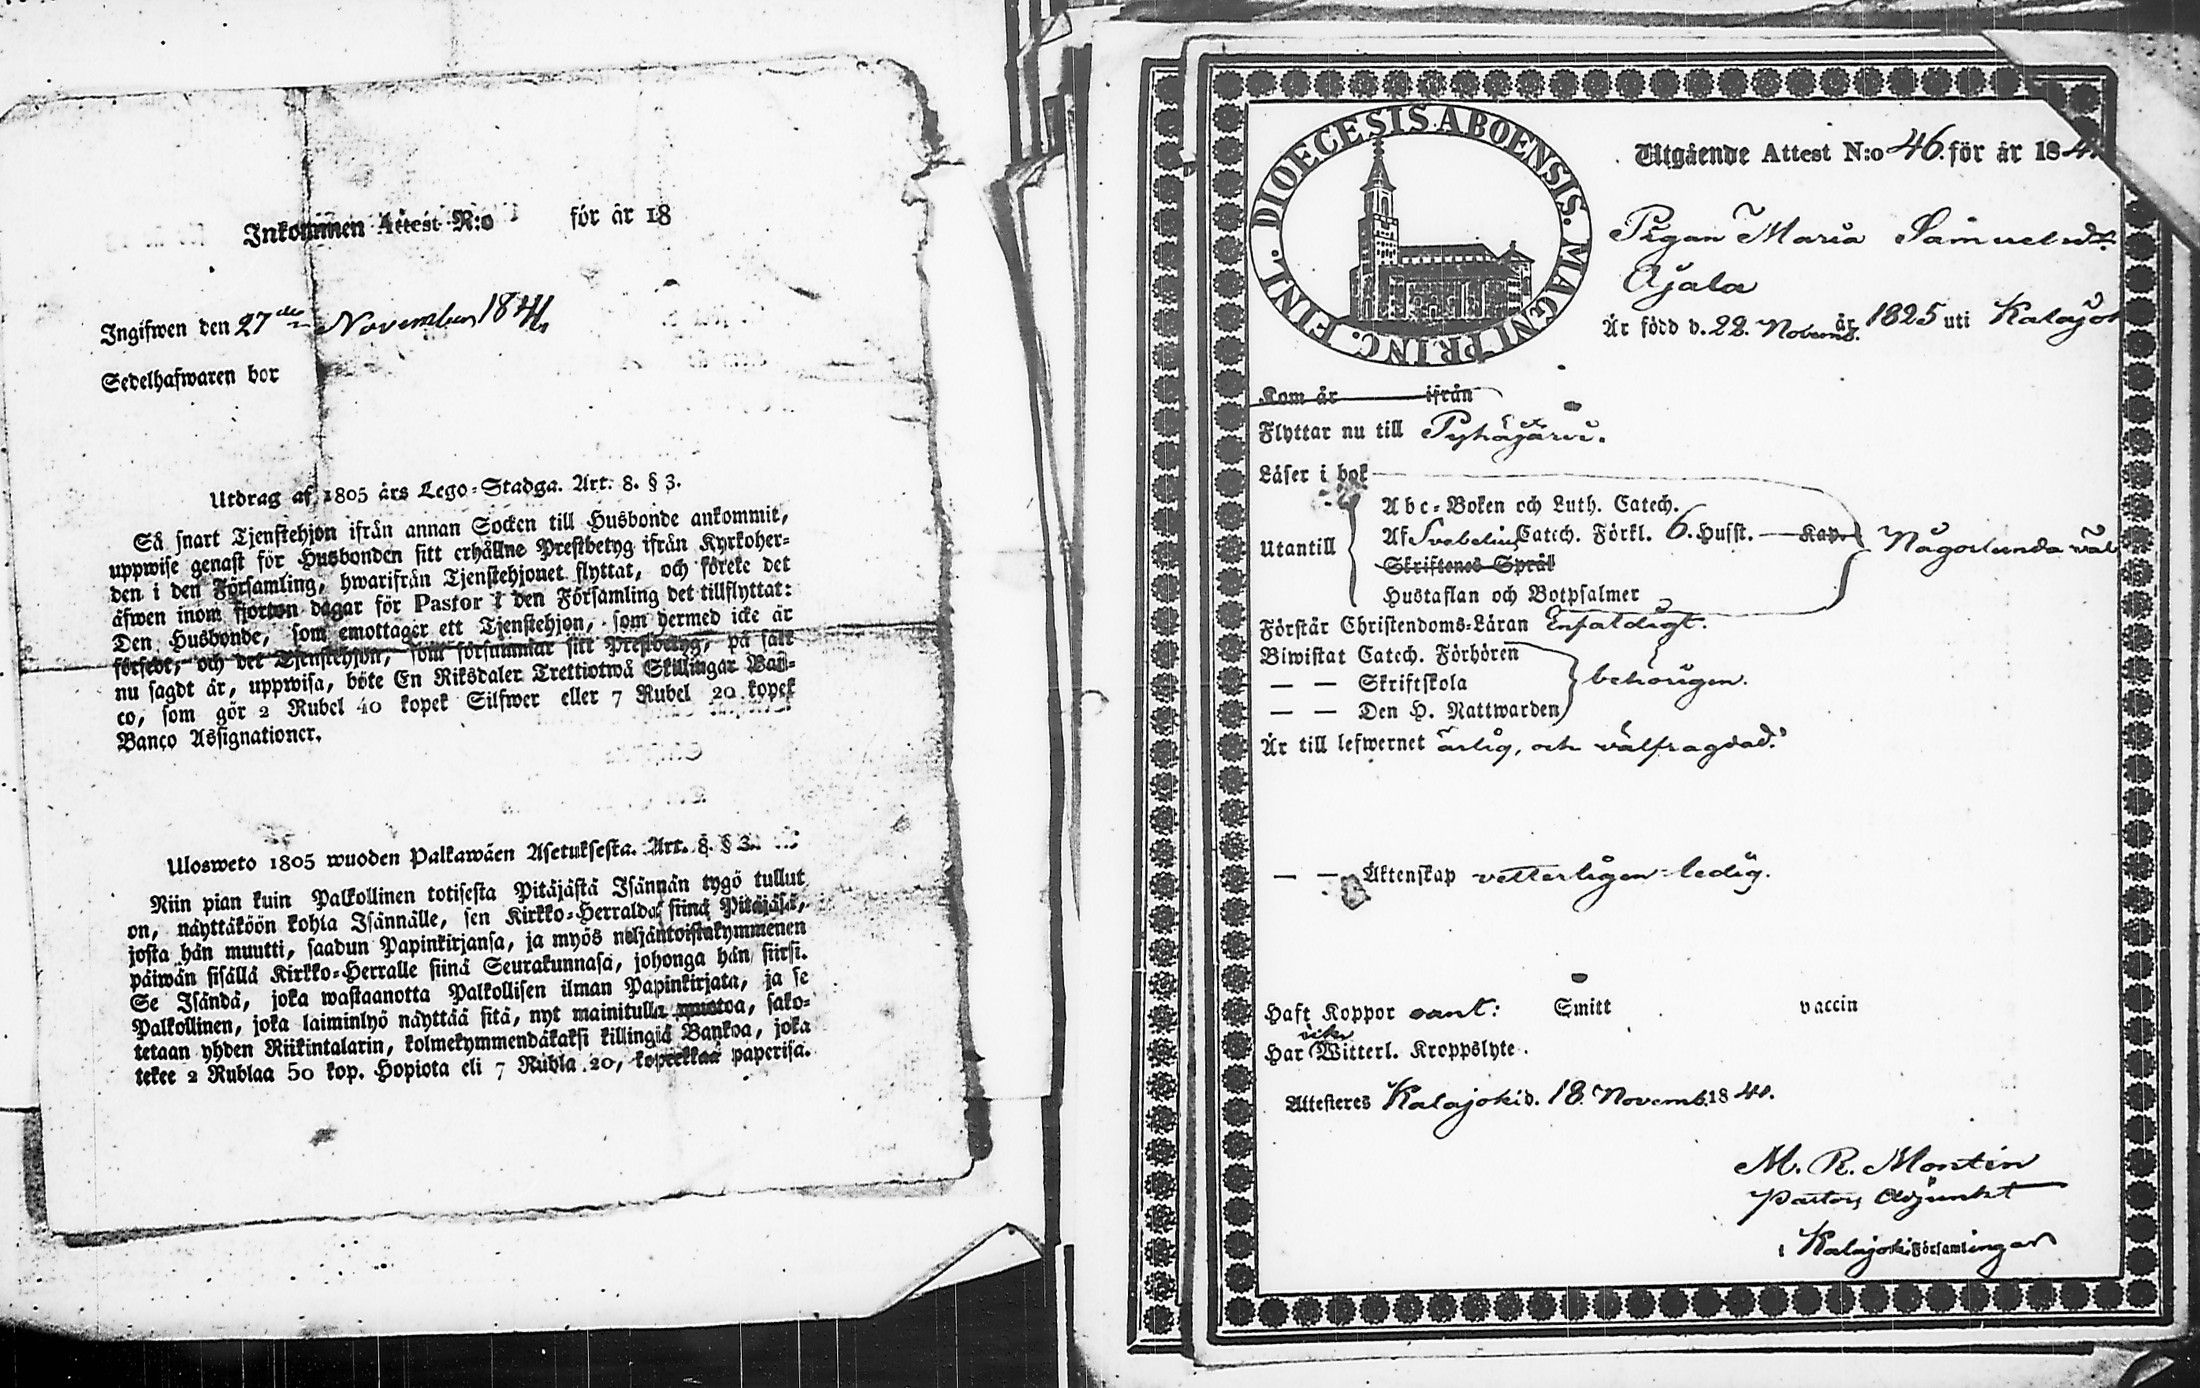 Inkommen Attest N:o för år 18
Ingifwen den 27de November 1841
Sedelhafwaren bor
Utdrag af 1805 års Lego-Stadga. Art. 8. § 3.
Så snart Tjenstehjon ifrån annan Socken till Husbonde ankommit,
uppwise genast för Husbonden sitt erhållne Prestbetyg ifrån Kyrkoher-
den i den Församling, hwarifrån Tjenstehjonet flyttat, och förete det
äfwen inom fjorton dagar för Pastor i den Församling det tillflyttat:
Den Husbonde, som emottager ett Tjenstehjon, som dermed icke är
försedt, och det Tjenstehjon, som försummar sitt Prestbetyg, på sätt
nu sagdt är, uppwisa, böte En Riksdaler Trettiotwå Skillingar Ban-
co, som gör 2 Rubel 40 kopek Silfwer eller 7 Rubel 20 kopek
Banco Assignationer.
Ulosweto 1805 wuoden Palkawäen Asetuksesta. Art. 8. § 3.
Niin pian kuin Palkollinen totisesta Pitäjästä Isännän tygö tullut
on, näyttäköön kohta Isännälle, sen Kirkko-Herralda siinä Pitäjäsä,
josta hän muutti, saadun Papinkirjansa, ja myös neljäntoistakymmenen
päiwän sisällä Kirkko-Herralle siinä Seurakunnasa, johonga hän siirsi.
Se Isändä, joka wastaanotta Palkollisen ilman Papinkirjata, ja se
Palkollinen, joka laiminlyö näyttää sitä, nyt mainitulla muotoa, sako-
tetaan yhden Riikintalarin, kolmekymmendäkaksi killingiä Bankoa, joka
tekee 2 Rublaa 50 kop. Hopiota eli 7 Rubla 20, kopeekkaa paperisa.
FINL. DIOECESIS ABOENSIS. MAGNI PRINC.
Utgående Attest N:o 46. för år 184
Pigan Maria Samuelsdr.
Ajala
Är född d. 22. Novemb. år 1825 uti Kalajok
Kom år ifrån
Flyttar nu till Pyhäjärvi.
Läser i bok
Abc-Boken och Luth. Catech.
Utantill Af Svebelius Catech. Förkl. 6. Husst. Kap. Någorlunda väl
Skriftenes Språk
Hustaflan och Botpsalmer
Förstår Christendoms-Läran Enfaldigt.
Biwistat Catech. Förhören
— — Skriftskola behörigen.
— — Den H. Nattwarden
Är till lefwernet ärlig, och välfrägdad.
— — Äktenskap vetterligen ledig.
Haft Koppor sant: Smitt vaccin
Har icke Witterl. Kroppslyte.
Attesteres Kalajoki d. 18. Novemb. 1841.
M. R. Montin
Pastors Adjunkt
i Kalajoki Församlingar